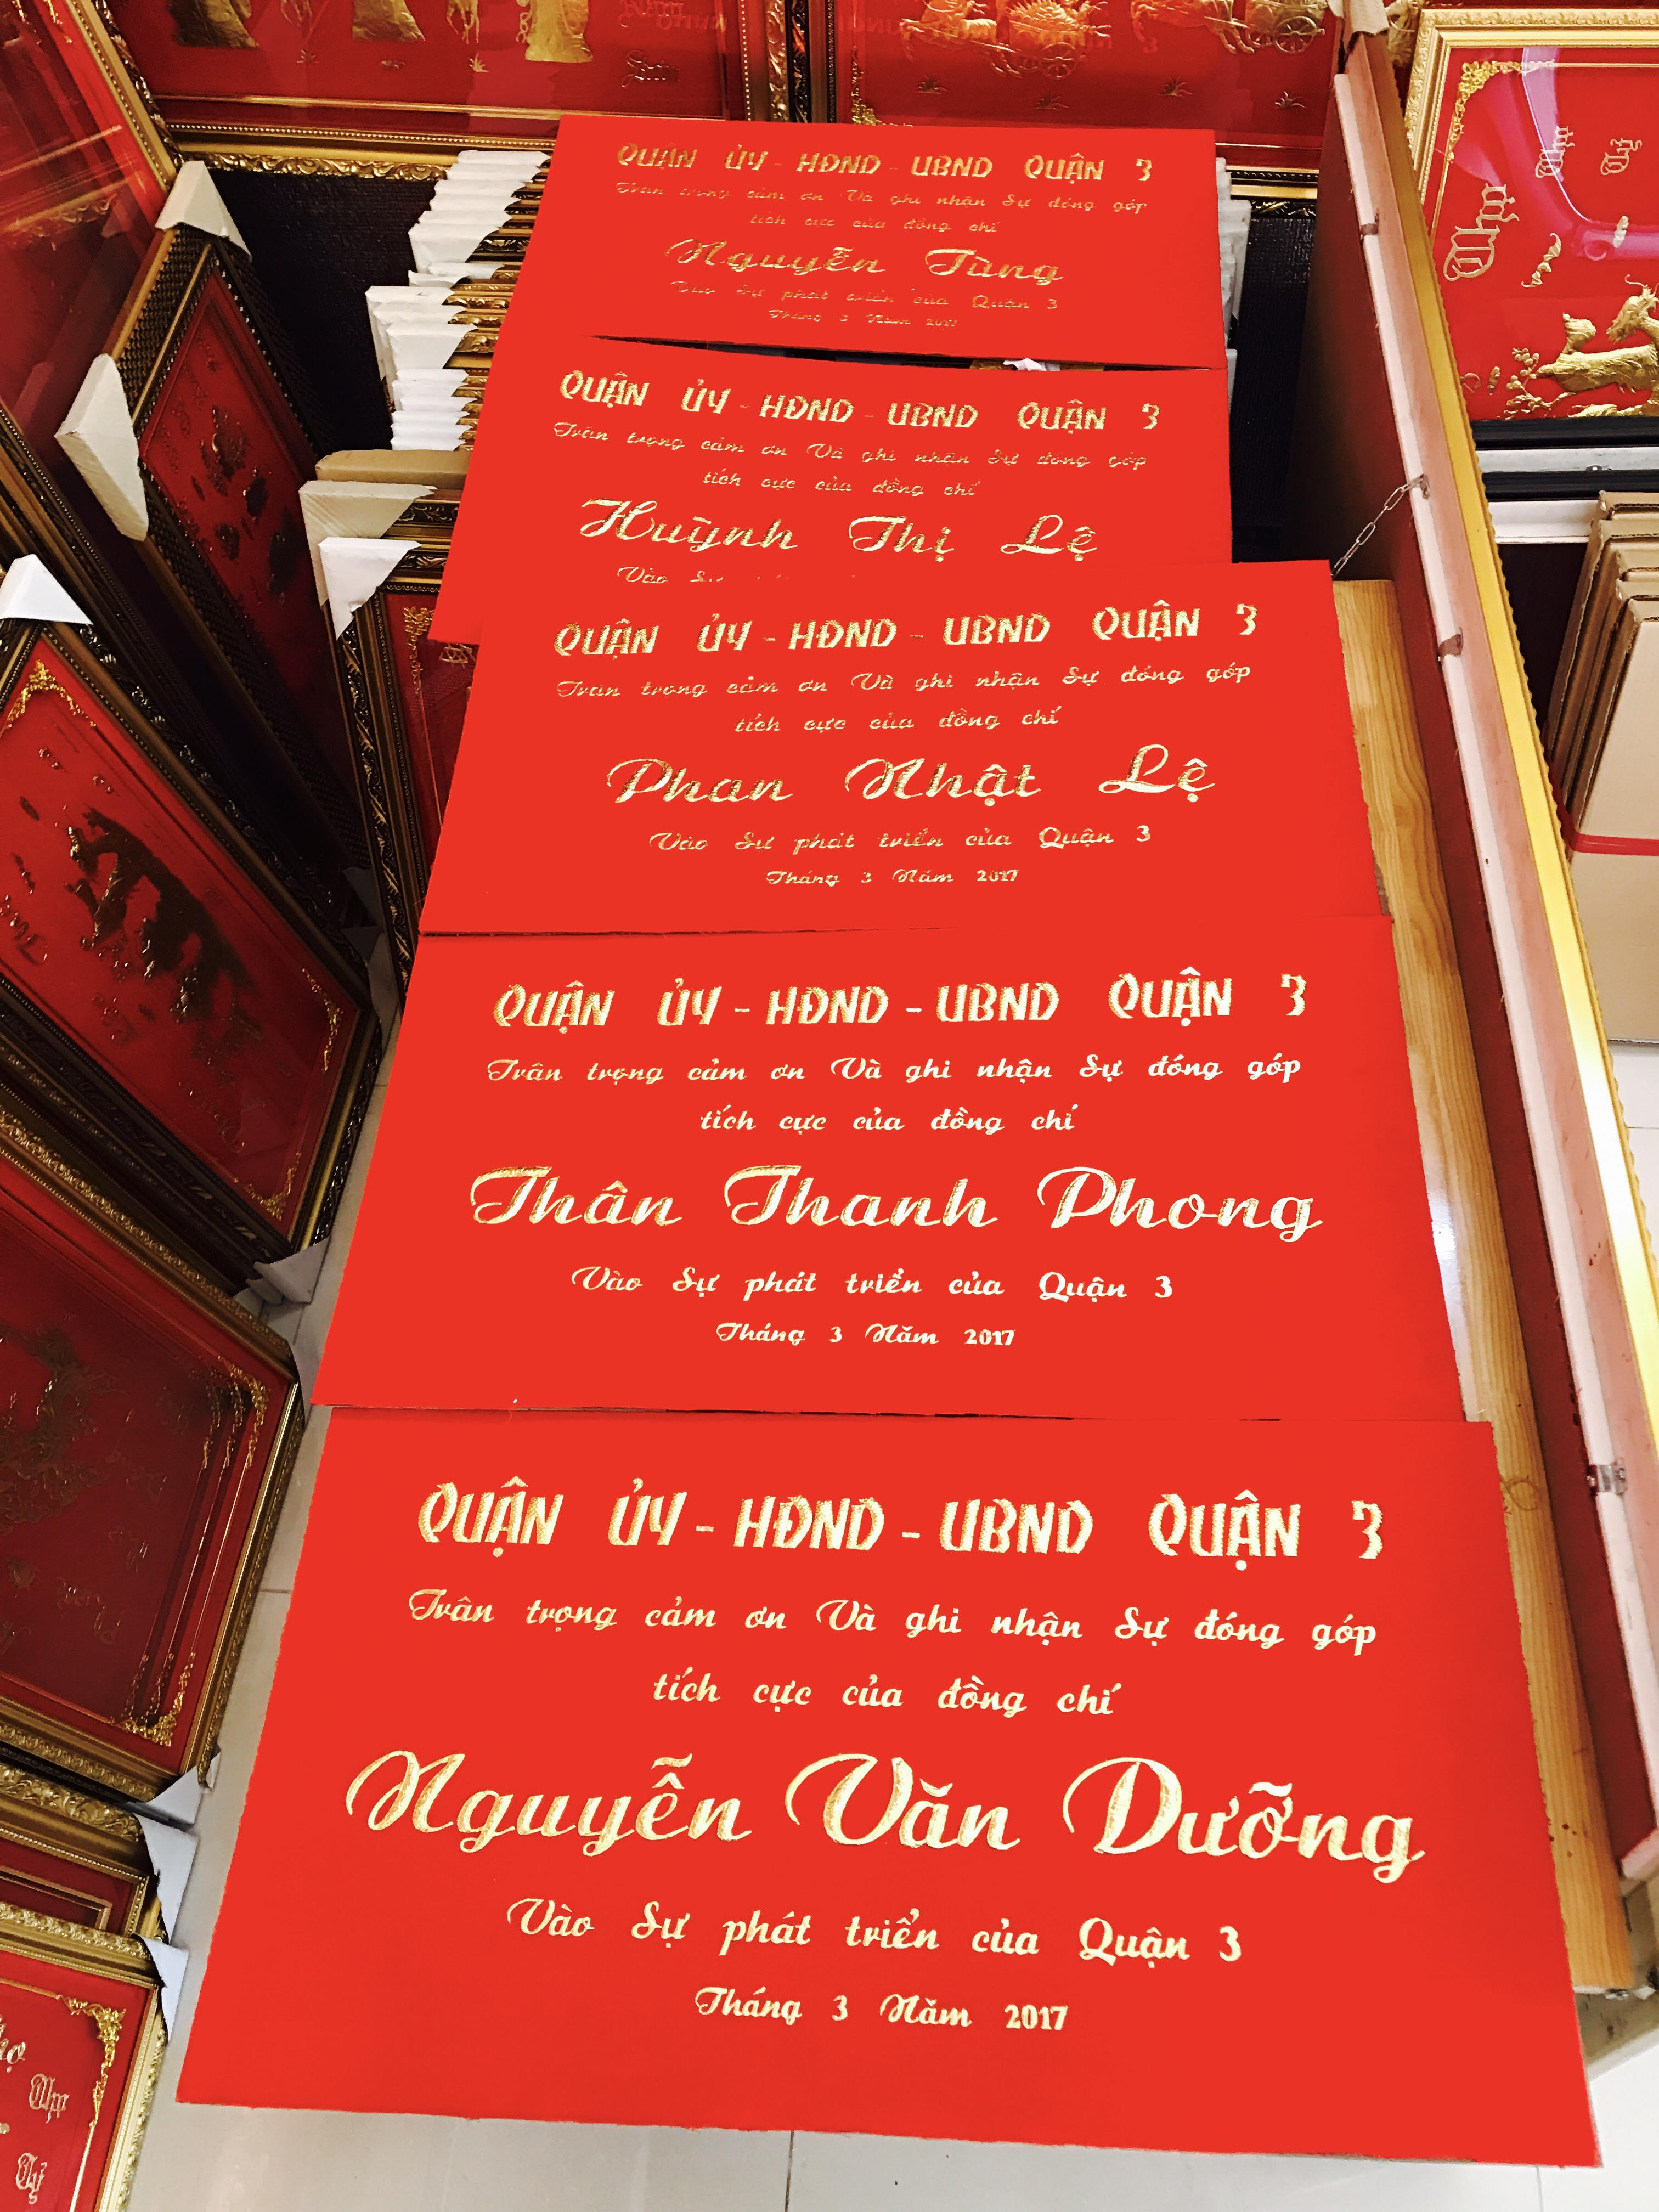 QUẬN ỦY - HĐND - UBND QUẬN 3
Trân trọng cảm ơn Và ghi nhận Sự đóng góp
tích cực của đồng chí
Nguyễn Tùng
Vào Sự phát triển của Quận 3
Tháng 3 Năm 2017
QUẬN ỦY - HĐND - UBND QUẬN 3
Trân trọng cảm ơn Và ghi nhận Sự đóng góp
tích cực của đồng chí
Huỳnh Thị Lệ
Vào
QUẬN ỦY - HĐND - UBND QUẬN 3
Trân trọng cảm ơn Và ghi nhận Sự đóng góp
tích cực của đồng chí
Phan Nhật Lệ
Vào Sự phát triển của Quận 3
Tháng 3 Năm 2017
QUẬN ỦY - HĐND - UBND QUẬN 3
Trân trọng cảm ơn Và ghi nhận Sự đóng góp
tích cực của đồng chí
Thân Thanh Phong
Vào Sự phát triển của Quận 3
Tháng 3 Năm 2017
QUẬN ỦY - HĐND - UBND QUẬN 3
Trân trọng cảm ơn Và ghi nhận Sự đóng góp
tích cực của đồng chí
Nguyễn Văn Dưỡng
Vào Sự phát triển của Quận 3
Tháng 3 Năm 2017